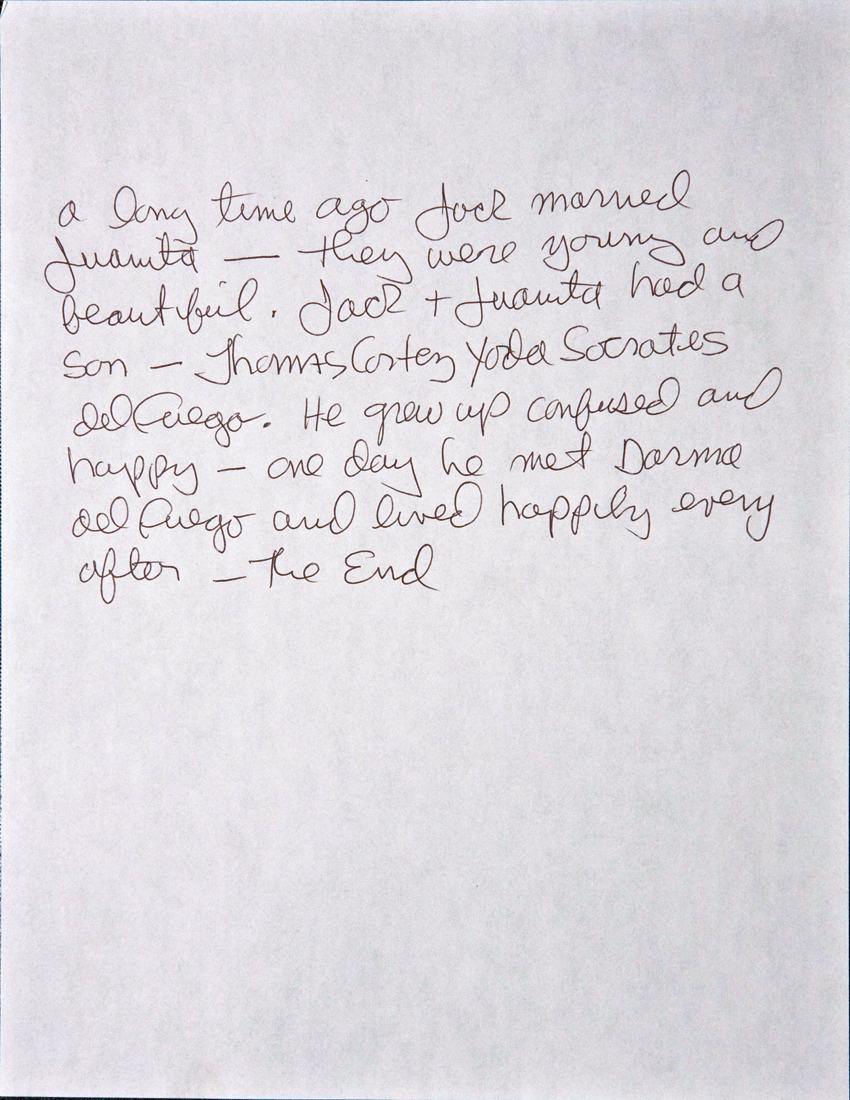 a long time ago Jack married
Juanita — they were young and
beautiful. Jack + Juanita had a
son — Thomas Cortez Yoda Socrates
del Fuego. He grew up confused and
happy — one day he met Darma
del Fuego and lived happily every
after — The End